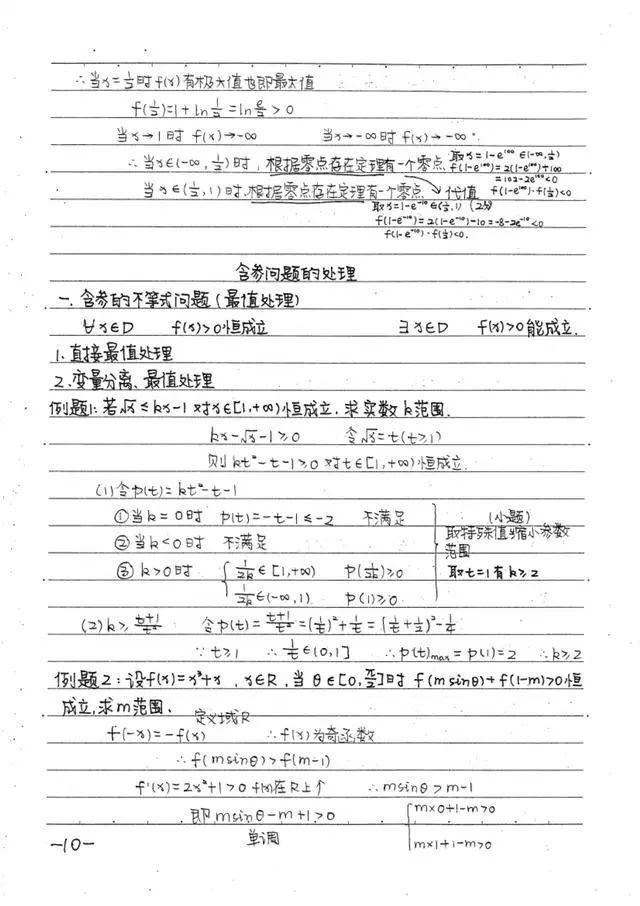 ∴当x=1/2时f(x)有极大值也即最大值
f(1/2)=1+ln1/2=ln e/2>0
当x→1时 f(x)→-∞ 当x→-∞时 f(x)→-∞.
∴当x∈(-∞,1/2)时,根据零点存在定理有一个零点 取x=1-e^100 ∈(-∞,1/2)
f(1-e^100)=2(1-e^100)+100
=102-2e^100<0
当x∈(1/2,1)时,根据零点存在定理有一个零点 → 代值 f(1-e^100)·f(1/2)<0
取x=1-e^-10∈(1/2,1)
f(1-e^-10)=2(1-e^-10)-10=-8-2e^-10<0
f(1-e^-10)·f(1/2)<0.
含参问题的处理
一.含参的不等式问题(最值处理)
∀x∈D f(x)>0恒成立 ∃x∈D f(x)>0能成立.
1.直接最值处理
2.变量分离、最值处理
例题1:若√x≤kx-1对x∈[1,+∞)恒成立,求实数k范围.
kx-√x-1≥0 令√x=t(t≥1)
则kt²-t-1≥0对t∈[1,+∞)恒成立.
(1)令p(t)=kt²-t-1
①当k=0时 p(t)=-t-1≤-2 不满足 (小题)
取特殊值缩小参数
②当k<0时 不满足 范围
③k>0时 { 1/2k∈[1,+∞) p(1/2k)≥0 取t=1有k≥2
1/2k∈(-∞,1) p(1)≥0
(2)k≥(t+1)/t² 令p(t)=(t+1)/t²=(1/t)²+1/t=(1/t+1/2)²-1/4
∵t≥1 ∴1/t∈(0,1] ∴p(t)max=p(1)=2 ∴k≥2
例题2:设f(x)=x³+x,x∈R,当θ∈[0,π/2]时 f(msinθ)+f(1-m)>0恒
成立,求m范围.
定义域R
f(-x)=-f(x) ∴f(x)为奇函数
∴f(msinθ)>f(m-1)
f'(x)=2x²+1>0 f(x)在R上↑ ∴msinθ>m-1
即msinθ-m+1>0 { m×0+1-m>0
单调 m×1+1-m>0
-10-